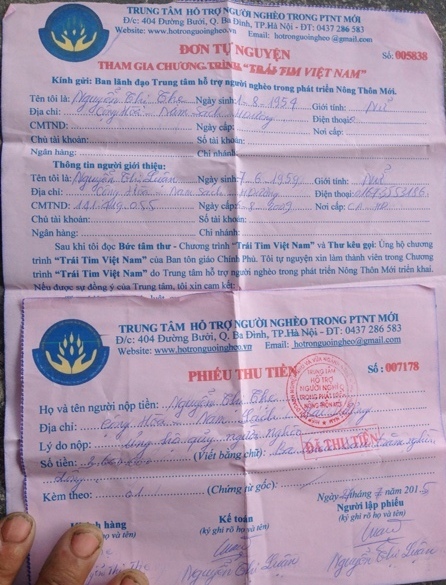 TRUNG TÂM HỖ TRỢ NGƯỜI NGHÈO TRONG PTNT MỚI
Đ/c: 404 Đường Bưởi, Q. Ba Đình, TP.Hà Nội - ĐT: 0437 286 583
Website: www.hotronguoingheo.vn Email: hotronguoingheo@gmail.com
ĐƠN TỰ NGUYỆN
Số: 005838
THAM GIA CHƯƠNG TRÌNH "TRÁI TIM VIỆT NAM"
Kính gửi: Ban lãnh đạo Trung tâm hỗ trợ người nghèo trong phát triển Nông Thôn Mới.
Tên tôi là: Nguyễn Thị The Ngày sinh: 1-8-1959 Giới tính: Nữ
Địa chỉ: Cộng Hòa - Nam Sách Điện thoại:
CMTND: Ngày cấp: Nơi cấp:
Chủ tài khoản: Số tài khoản:
Ngân hàng: Chi nhánh:
Thông tin người giới thiệu:
Tên tôi là: Nguyễn Thị Luân Ngày sinh: 7-6-1959 Giới tính: Nữ
Địa chỉ: Cộng Hòa - Nam Sách Điện thoại:
CMTND: 141.419.055 Ngày cấp: Nơi cấp:
Chủ tài khoản: Số tài khoản:
Ngân hàng: Chi nhánh:
Sau khi tôi đọc Bức tâm thư - Chương trình "Trái Tim Việt Nam" và Thư kêu gọi: Ủng hộ chương
trình "Trái Tim Việt Nam" của Ban tôn giáo Chính Phủ. Tôi tự nguyện xin làm thành viên trong Chương
trình "Trái Tim Việt Nam" do Trung tâm hỗ trợ người nghèo trong phát triển Nông Thôn Mới triển khai.
Nếu được sự đồng ý của Trung tâm, tôi xin cam kết:
TRUNG TÂM HỖ TRỢ NGƯỜI NGHÈO TRONG PTNT MỚI
Đ/c: 404 Đường Bưởi, Q. Ba Đình, TP.Hà Nội - ĐT: 0437 286 583
Website: www.hotronguoingheo.vn Email: hotronguoingheo@gmail.com
PHIẾU THU TIỀN
Số: 007178
TRUNG TÂM
HỖ TRỢ
NGƯỜI NGHÈO
TRONG PHÁT TRIỂN
NÔNG THÔN MỚI
Họ và tên người nộp tiền: Nguyễn Thị The
Địa chỉ: Cộng Hòa - Nam Sách
Lý do nộp: ủng hộ quỹ người nghèo
ĐÃ THU TIỀN
Số tiền: (Viết bằng chữ): Ba
đồng
Kèm theo: 01 (Chứng từ gốc):
Ngày tháng 7 năm 2015
hàng Kế toán Người lập phiếu
(ký ghi rõ họ và tên) (ký ghi rõ họ và tên)
Nguyễn Thị Luân Nguyễn Thị Luân